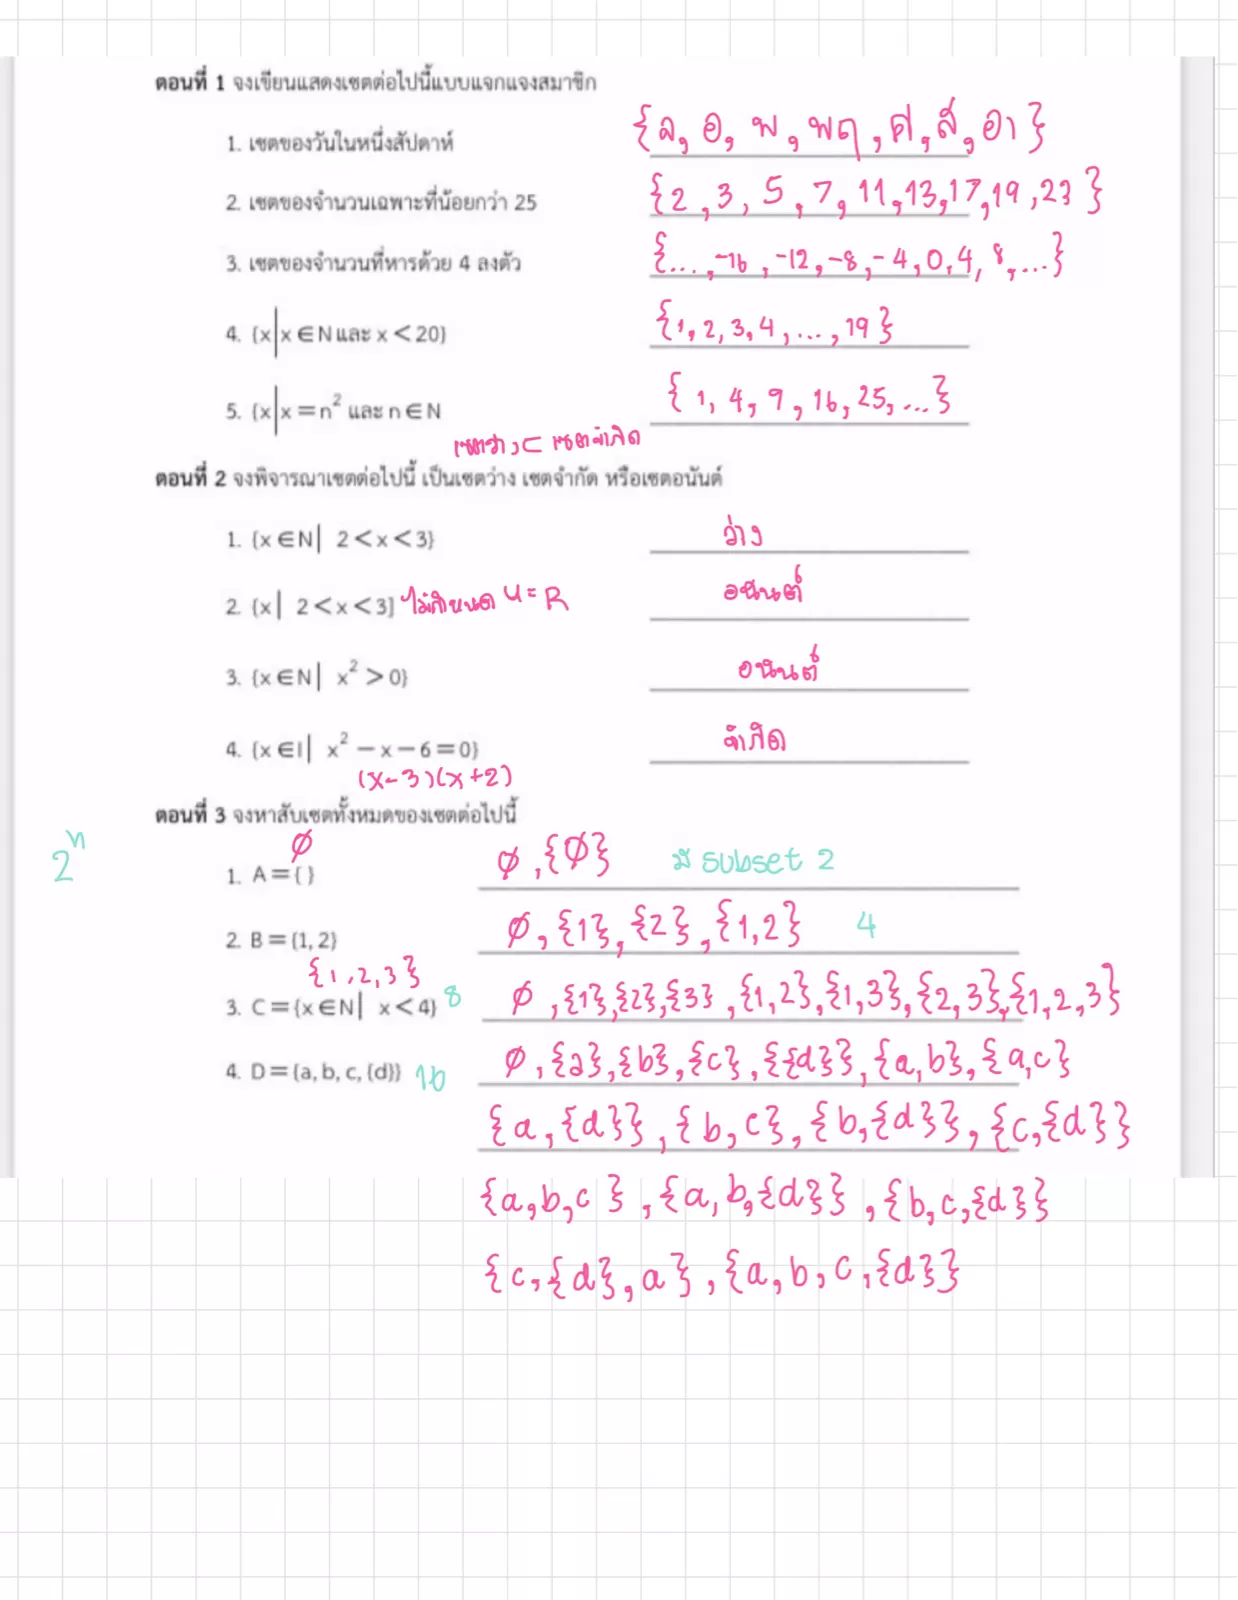 ตอนที่ 1 จงเขียนแสดงเซตต่อไปนี้แบบแจกแจงสมาชิก
1. เซตของวันในหนึ่งสัปดาห์ {จ, อ, พ, พฤ, ศ, ส, อา}
2. เซตของจำนวนเฉพาะที่น้อยกว่า 25 {2, 3, 5, 7, 11, 13, 17, 19, 23}
3. เซตของจำนวนที่หารด้วย 4 ลงตัว {..., -16, -12, -8, -4, 0, 4, 8, ...}
4. {x|x ∈ N และ x < 20} {1, 2, 3, 4, ..., 19}
5. {x|x = n² และ n ∈ N {1, 4, 9, 16, 25, ...}
เซตว่าง ⊂ เซตจำกัด
ตอนที่ 2 จงพิจารณาเซตต่อไปนี้ เป็นเซตว่าง เซตจำกัด หรือเซตอนันต์
1. {x ∈ N| 2 < x < 3} ว่าง
2. {x| 2 < x < 3] ไม่กำหนด U = R อนันต์
3. {x ∈ N| x² > 0} อนันต์
4. {x ∈ I| x² − x − 6 = 0} จำกัด
(x-3)(x+2)
ตอนที่ 3 จงหาสับเซตทั้งหมดของเซตต่อไปนี้
2ⁿ
∅
1. A = { } ∅, {∅} มี subset 2
2. B = {1, 2} ∅, {1}, {2}, {1,2} 4
{1, 2, 3}
3. C = {x ∈ N| x < 4} 8 ∅, {1}, {2}, {3}, {1,2}, {1,3}, {2,3}, {1,2,3}
4. D = {a, b, c, {d}} 16 ∅, {a}, {b}, {c}, {{d}}, {a,b}, {a,c}
{a,{d}}, {b,c}, {b,{d}}, {c,{d}}
{a,b,c}, {a,b,{d}}, {b,c,{d}}
{c,{d},a}, {a,b,c,{d}}